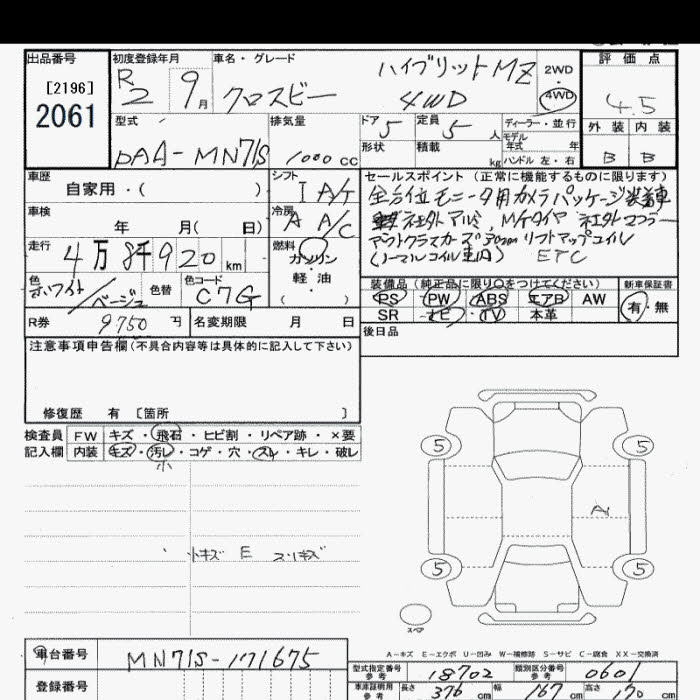 出品番号
[2196]
2061
初度登録年月
R2 9月
車名・グレード
ハイブリットMZ
クロスビー 4WD
2WD
4WD
評価点
4.5
外装 内装
B B
型式
DAA-MN71S
排気量
1000cc
ドア 5
定員 5人
形状
積載 kg
ディーラー・並行
モデル
年式 年
ハンドル 左・右
車歴
自家用・( )
シフト
I A/T
車検
年 月( 日)
冷房
A A/C
走行
4万8千920km
燃料
ガソリン
軽・油
( )
色
ホワイト/ベージュ
色替
色コード
C7G
R券
9750円
名変期限 月 日
セールスポイント (正常に機能するものに限ります)
全方位モニター用カメラパッケージ装着車
社外アルミ、M/Tタイヤ 社外マフラー
アウトクラスカーズ 30mmリフトアップコイル
(ノーマルコイル車内) ETC
装備品(純正品に限り○をつけてください)
PS PW ABS エアB AW
SR ナビ TV 本革
新車保証書
有・無
後日品
注意事項申告欄(不具合内容等は具体的に記入して下さい)
修復歴 有 〔箇所 〕
検査員
記入欄
FW キズ・飛石・ヒビ割・リペア跡・×要
内装 キズ・汚レ・コゲ・穴・スレ・キレ・破レ
小
小キズ E スリキズ
5 5
A1
5 5
スペア
A−キズ E−エクボ U−凹み W−補修跡 S−サビ C−腐食 XX−交換済
車台番号
MN71S-171675
登録番号
型式指定番号
参考
18702
類別区分番号
参考
0601
車庫証明用
参考
長さ 376 cm
幅 167 cm
高さ 170 cm